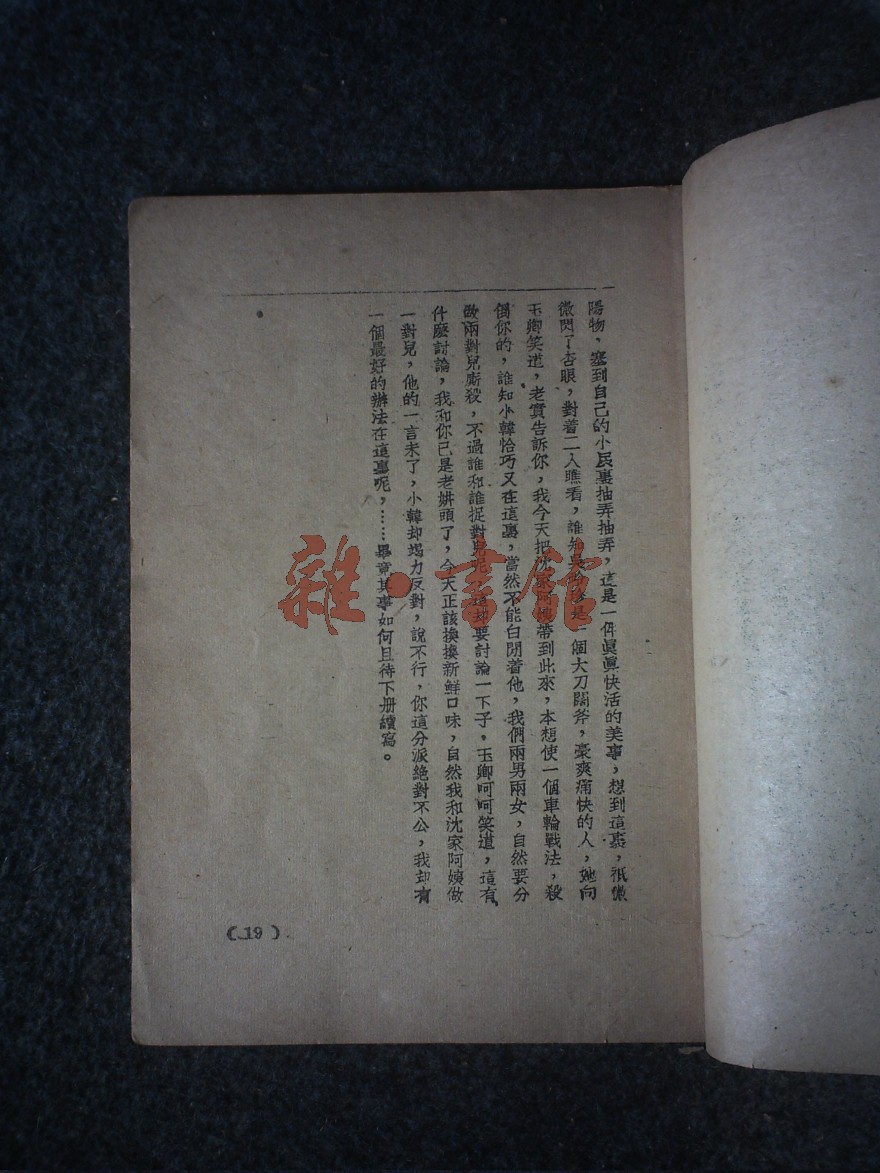 陽物，塞到自己的小民裏抽弄抽弄，這是一件眞眞快活的美事，想到這裏，祇微
微閃了杏眼，對着二人瞧看，誰知是一個大刀闊斧，豪爽痛快的人，她向
玉卿笑道，老實告訴你，我今天把沈家阿姨帶到此來，本想使一個車輪戰法，殺
倒你的，誰知小韓恰巧又在這裏，當然不能白閒着他，我們兩男兩女，自然要分
做兩對兒廝殺，不過誰和誰捉對兒呢，這却要討論一下子，玉卿呵呵笑道，這有
什麼討論，我和你已是老姘頭了，今天正該換換新鮮口味，自然我和沈家阿姨做
一對兒，他的一言未了，小韓却竭力反對，說不行，你這分派絕對不公，我却有
一個最好的辦法在這裏呢，……畢竟其事如何且待下册續寫。
（19）
雜·書館